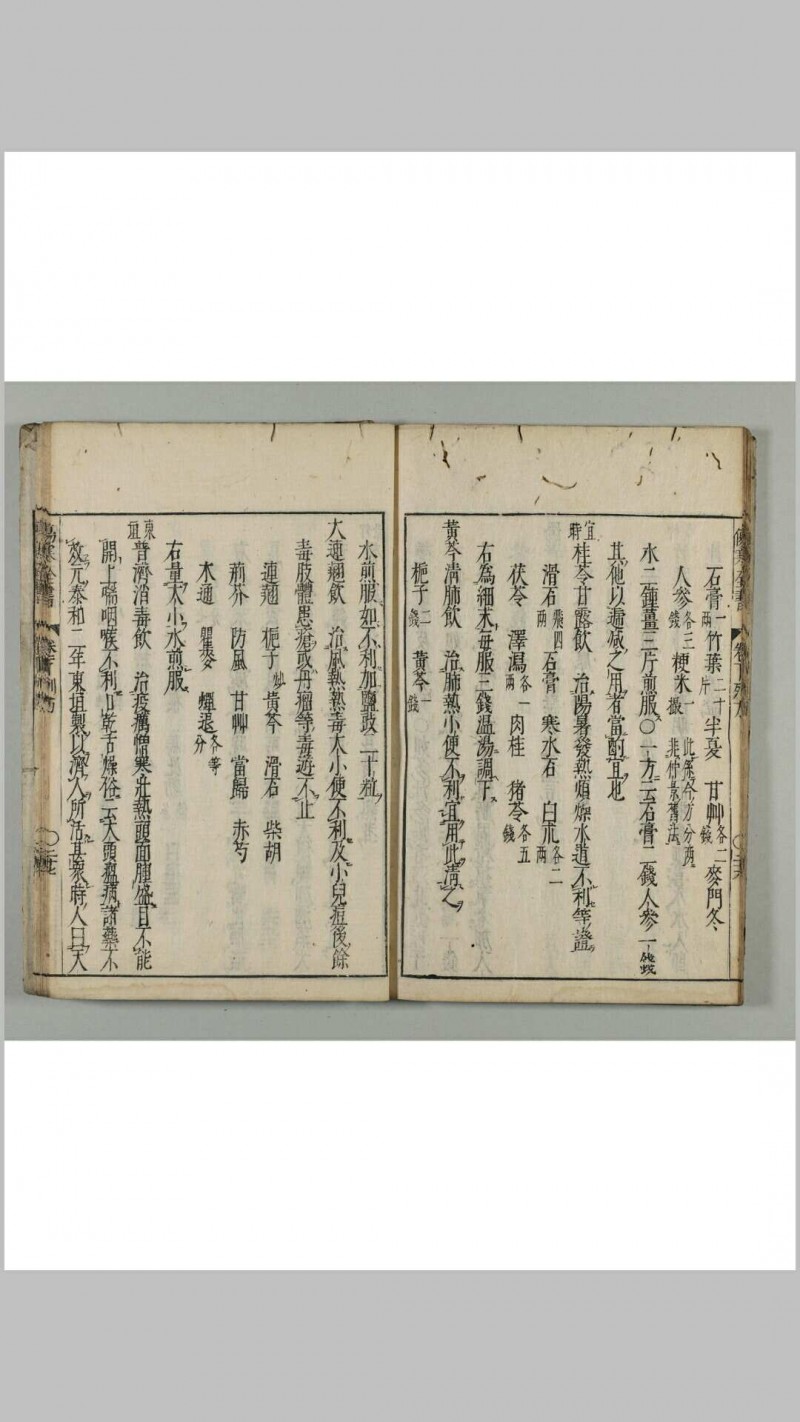 石膏一兩竹葉二十片半夏 甘艸各二錢麥門冬
人參各三錢粳米一撮 此係今方分兩非仲景舊法
水二鍾薑三片煎服〇一方云石膏二錢人參一錢
其他以遞減之用者當酌宜也
宜時桂苓甘露飲 治陽暑發熱煩燥水道不利等證
滑石飛四兩 石膏 寒水石 白朮各二兩
茯苓 澤瀉各一兩 肉桂 猪苓各五錢
右為細末每服三錢温湯調下
黃芩清肺飲 治肺熱小便不利宜用此清之
梔子二錢 黃芩一錢
水煎服如不利加鹽豉二十粒
大連翹飲 治風熱熱毒大小便不利及小兒痘後餘
毒肢體患瘡或丹瘤等毒遊不止
連翹 梔子炒 黃芩 滑石 柴胡
荊芥 防風 甘艸 當歸 赤芍
木通 瞿麥 蟬退各等分
右量大小水煎服
東垣普濟消毒飲 治疫癘憎寒壯熱頭面腫盛目不能
開上喘咽喉不利口乾舌燥俗云大頭瘟病諸藥不
效元泰和二年東垣製以濟人所活甚衆時人曰天
傷寒全書